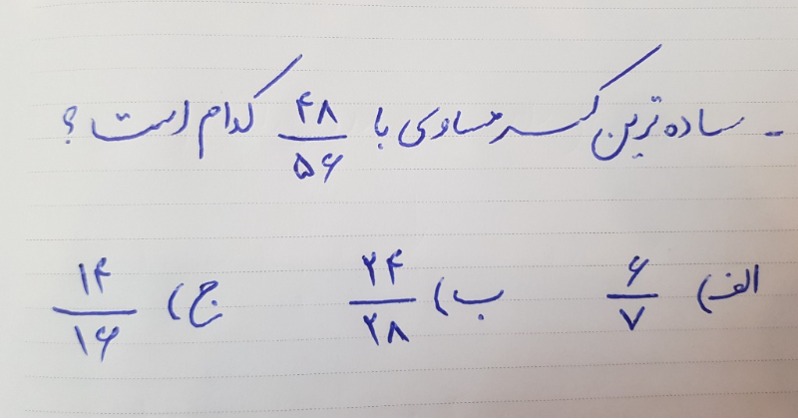 - ساده ترین کسر مساوی با ۴۸/۵۶ کدام است ؟
الف) ۶/۷ ب) ۲۴/۲۸ ج) ۱۴/۱۶